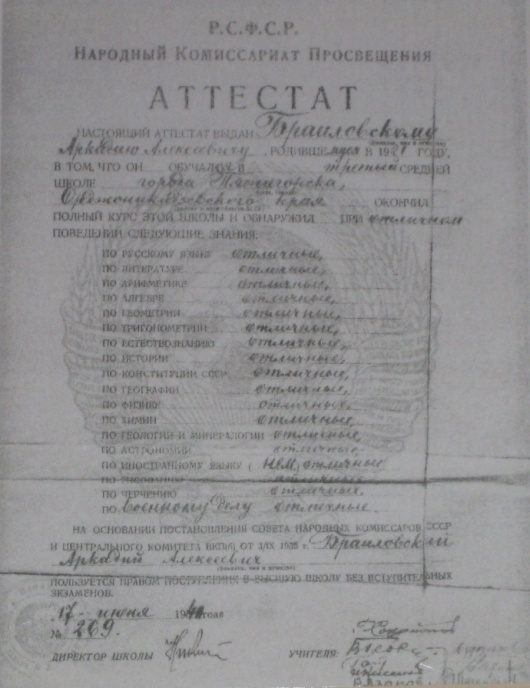 Р.С.Ф.С.Р.
НАРОДНЫЙ КОМИССАРИАТ ПРОСВЕЩЕНИЯ
АТТЕСТАТ
НАСТОЯЩИЙ АТТЕСТАТ ВЫДАН Браиловскому
Аркадию Алексеевичу, РОДИВШЕмуся В 19 ГОДУ,
В ТОМ, ЧТО ОН ОБУЧАЛСЯ В третьей СРЕДНЕЙ
ШКОЛЕ города Пятигорска,
Орджоникидзевского края ОКОНЧИЛ
ПОЛНЫЙ КУРС ЭТОЙ ШКОЛЫ И ОБНАРУЖИЛ ПРИ отличном
ПОВЕДЕНИИ СЛЕДУЮЩИЕ ЗНАНИЯ:
ПО РУССКОМУ ЯЗЫКУ отличные,
ПО ЛИТЕРАТУРЕ отличные,
ПО АРИФМЕТИКЕ отличные,
ПО АЛГЕБРЕ отличные,
ПО ГЕОМЕТРИИ отличные,
ПО ТРИГОНОМЕТРИИ отличные,
ПО ЕСТЕСТВОЗНАНИЮ отличные,
ПО ИСТОРИИ отличные,
ПО КОНСТИТУЦИИ СССР отличные,
ПО ГЕОГРАФИИ отличные,
ПО ФИЗИКЕ отличные,
ПО ХИМИИ отличные,
ПО ГЕОЛОГИИ И МИНЕРАЛОГИИ отличные,
ПО АСТРОНОМИИ отличные,
ПО ИНОСТРАННОМУ ЯЗЫКУ ( нем, отличные
отличные
ПО ЧЕРЧЕНИЮ отличные.
ПО военному делу отличные.
НА ОСНОВАНИИ ПОСТАНОВЛЕНИЯ СОВЕТА НАРОДНЫХ КОМИССАРОВ СССР
И ЦЕНТРАЛЬНОГО КОМИТЕТА ВКП(б) ОТ 3/IX 1935 г. Браиловский
Аркадий Алексеевич
ПОЛЬЗУЕТСЯ ПРАВОМ ПОСТУПЛЕНИЯ В ВЫСШУЮ ШКОЛУ БЕЗ ВСТУПИТЕЛЬНЫХ
ЭКЗАМЕНОВ.
17 июня 1940 года
№ 269.
ДИРЕКТОР ШКОЛЫ УЧИТЕЛЯ: